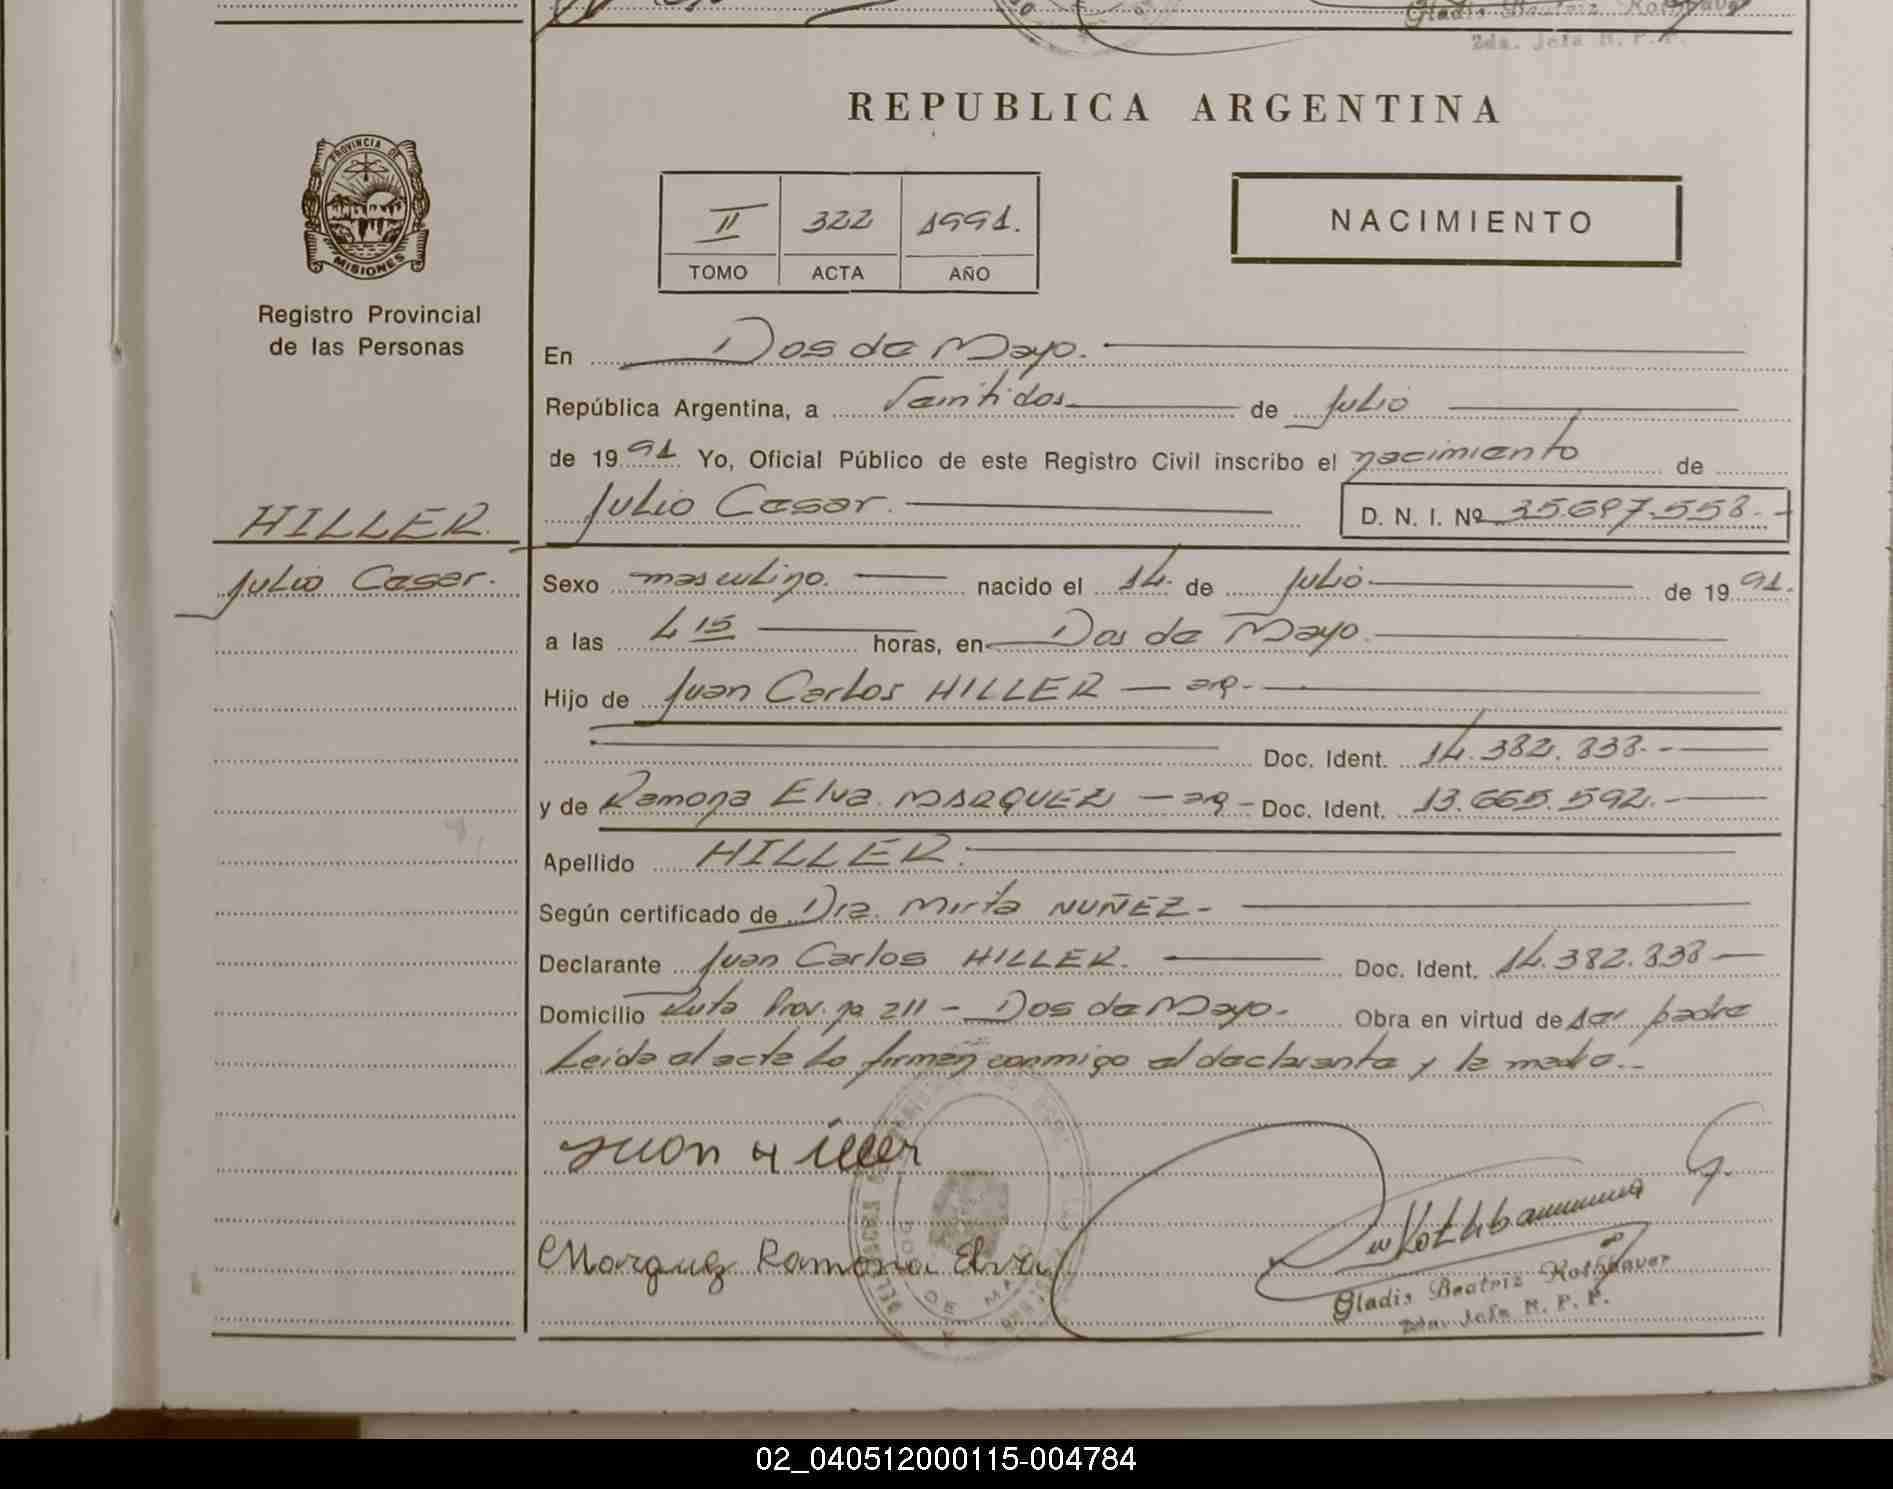 Gladis Beatriz Rothbauer
2da. Jefa R. P. P.
REPUBLICA ARGENTINA
PROVINCIA DE
MISIONES
Registro Provincial
de las Personas
II 322 1991.
TOMO ACTA AÑO
NACIMIENTO
En Dos de Mayo.
República Argentina, a Veintidos de Julio
de 1991 Yo, Oficial Público de este Registro Civil inscribo el nacimiento de
Julio Cesar. D. N. I. Nº 35.697.558.-
HILLER.
Julio Cesar.
Sexo masculino. nacido el 14. de Julio. de 1991.
a las 4 15 horas, en Dos de Mayo.
Hijo de Juan Carlos HILLER - ar.-
Doc. Ident. 14.382.838.-
y de Ramona Elva MARQUEZ - ar - Doc. Ident. 13.665.592.-
Apellido HILLER.
Según certificado de Dra. Mirta NUÑEZ.-
Declarante Juan Carlos HILLER. Doc. Ident. 14.382.838
Domicilio Ruta Prov. nº 211 - Dos de Mayo.- Obra en virtud de ser padre
Leída el acta la firman conmigo el declarante y la madre.-
Juan Hiller
Marquez Ramona Elva
Rothbauer
Gladis Beatriz Rothbauer
2da. Jefa R. P. P.
02_040512000115-004784